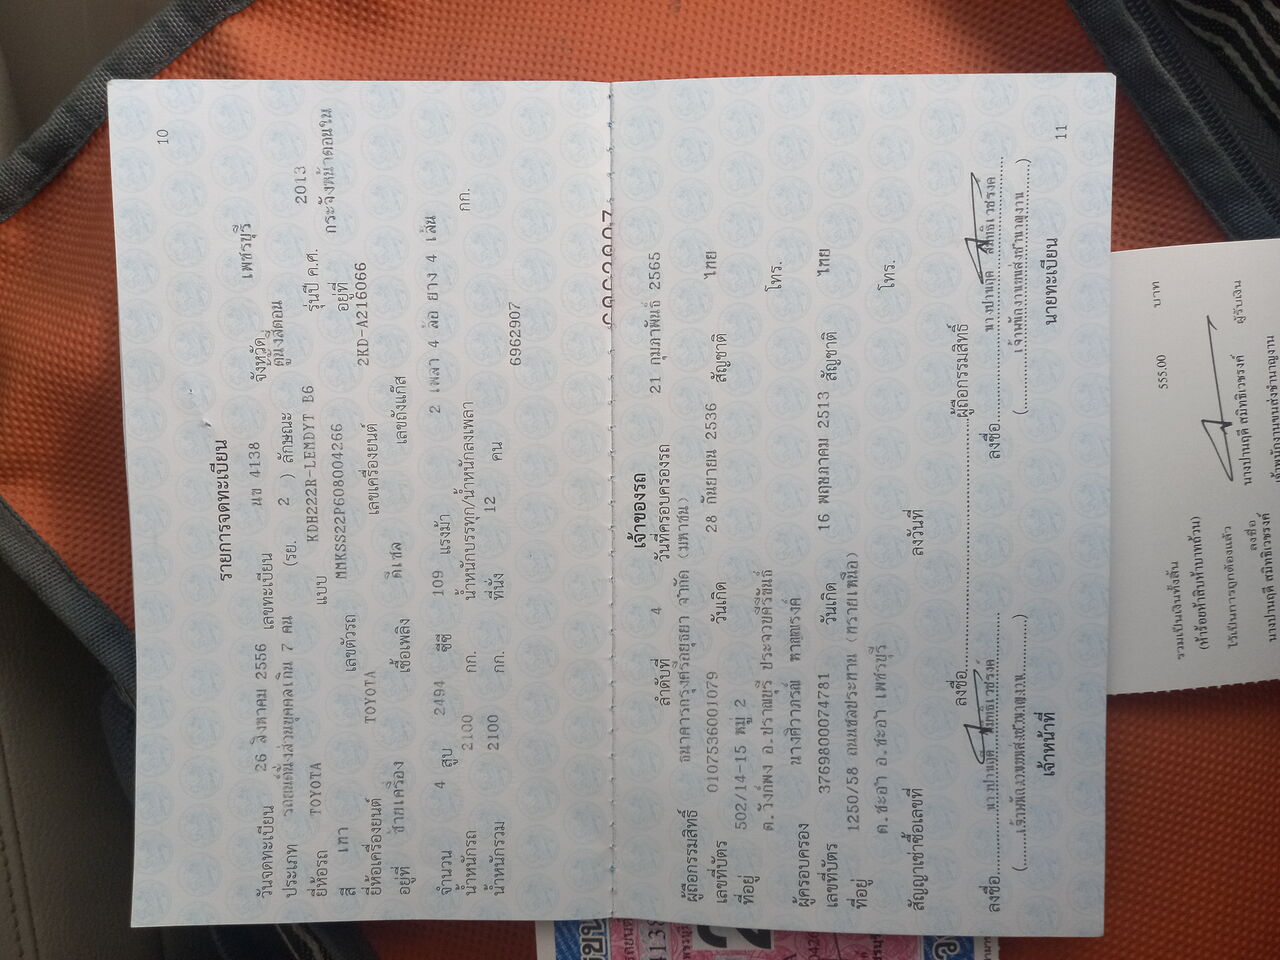 10
รายการจดทะเบียน
วันจดทะเบียน 26 สิงหาคม 2556 เลขทะเบียน นข 4138 จังหวัด เพชรบุรี
ประเภท รถยนต์นั่งส่วนบุคคลเกิน 7 คน (รย. 2 ) ลักษณะ ตู้นั่งสี่ตอน
ยี่ห้อรถ TOYOTA แบบ KDH222R-LEMDYT B6 รุ่นปี ค.ศ. 2013
สี เทา เลขตัวรถ MMKSS22P608004266 อยู่ที่ กระจังหน้าตอนใน
ยี่ห้อเครื่องยนต์ TOYOTA เลขเครื่องยนต์ 2KD-A216066
อยู่ที่ ซ้ายเครื่อง เชื้อเพลิง ดีเซล เลขถังแก๊ส
จำนวน 4 สูบ 2494 ซีซี 109 แรงม้า 2 เพลา 4 ล้อ ยาง 4 เส้น
น้ำหนักรถ 2100 กก. น้ำหนักบรรทุก/น้ำหนักลงเพลา กก.
น้ำหนักรวม 2100 กก. ที่นั่ง 12 คน 6962907
เจ้าของรถ
ลำดับที่ 4 วันที่ครอบครองรถ 21 กุมภาพันธ์ 2565
ผู้ถือกรรมสิทธิ์ ธนาคารกรุงศรีอยุธยา จำกัด (มหาชน)
เลขที่บัตร 0107536001079 วันเกิด 28 กันยายน 2536 สัญชาติ ไทย
ที่อยู่ 502/14-15 หมู่ 2
ต.วังก์พง อ.ปราณบุรี ประจวบคีรีขันธ์ โทร.
ผู้ครอบครอง นางศิวาภรณ์ หาญณรงค์
เลขที่บัตร 3769800074781 วันเกิด 16 พฤษภาคม 2513 สัญชาติ ไทย
ที่อยู่ 1250/58 ถนนชลประทาน (ทรายเหนือ)
ต.ชะอำ อ.ชะอำ เพชรบุรี โทร.
สัญญาเช่าซื้อเลขที่ ลงวันที่
ลงชื่อ ผู้ถือกรรมสิทธิ์
ลงชื่อ นางปานฤดี สมิทธิเวชรงค์ ลงชื่อ นางปานฤดี สมิทธิเวชรงค์
(เจ้าพนักงานขนส่งชำนาญงาน) (เจ้าพนักงานขนส่งชำนาญงาน)
เจ้าหน้าที่ นายทะเบียน
11
รวมเป็นเงินทั้งสิ้น 555.00 บาท
(ห้าร้อยห้าสิบห้าบาทถ้วน)
ไว้เป็นการถูกต้องแล้ว
ลงชื่อ ผู้รับเงิน
นางปานฤดี สมิทธิเวชรงค์ นางปานฤดี สมิทธิเวชรงค์
เจ้าพนักงานขนส่งชำนาญงาน